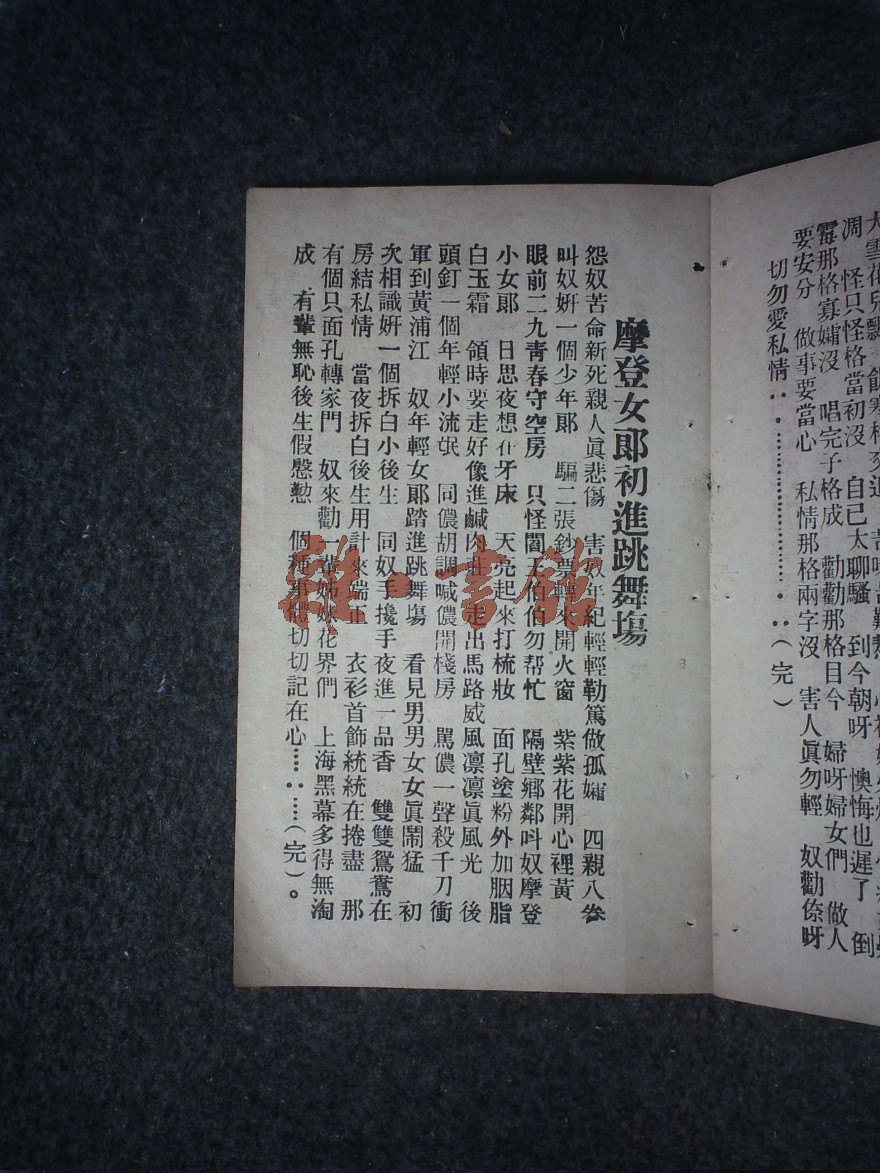 大雪花兒飄
凋　怪只怪格當初沒　自己太聊騷　到今朝呀　懊悔也遲了　倒
霉那格寡孀沒　唱完子格成　勸勸那格日今　婦呀婦女們　做人
要安分　做事要當心　私情那格兩字沒　害人眞勿輕　奴勸倷呀
切勿愛私情：．…………………．：（完）
摩登女郎初進跳舞塲
怨奴苦命新死親人眞悲傷　害奴年紀輕輕勒篤做孤孀　四親八眷
叫奴姘一個少年郎　騙二張鈔票轉來開火窗　紫紫花開心裡黃
眼前二九青春守空房　只怪閻王伯伯勿帮忙　隔壁鄉鄰叫奴摩登
小女郎　日思夜想在牙床　天亮起來打梳妝　面孔塗粉外加胭脂
白玉霜　領時要走好像進鹹肉莊　走出馬路威風凛凛眞風光　後
頭釘一個年輕小流氓　同儂胡調喊儂開棧房　駡儂一聲殺千刀衝
軍到黃浦江　奴年輕女郎踏進跳舞塲　看見男男女女眞鬧猛　初
次相識姘一個拆白小後生　同奴手攙手夜進一品香　雙雙鴛鴦在
房結私情　當夜拆白後生用計來端正　衣衫首飾統統在捲盡　那
有個只面孔轉家門　奴來勸一輩姊妹花界們　上海黑幕多得無淘
成　有輩無恥後生假慇懃　個種事體切切記在心……：……（完）。
雜·書館